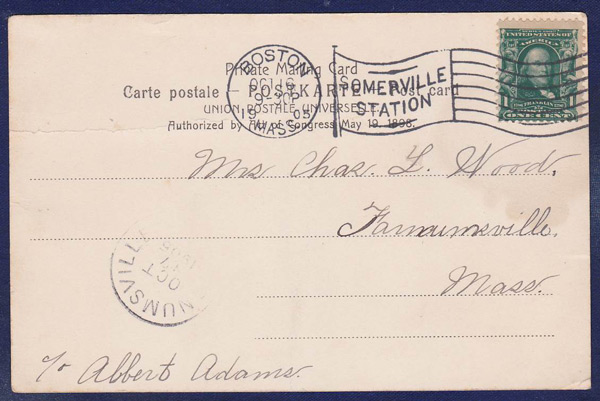 UNITED STATES OF AMERICA
FRANKLIN
1 1
ONE CENT
BOSTON
OCT 16
930P
19 05
MASS.
SOMERVILLE
STATION
Private Mailing Card
Carte postale — POSTKARTE — Post card
UNION POSTALE UNIVERSELLE
Authorized by Act of Congress May 19, 1898.
Mrs Chas. L. Wood,
Farnumsville,
Mass.
NUMSVILL
OCT
17
c/o Albert Adams.